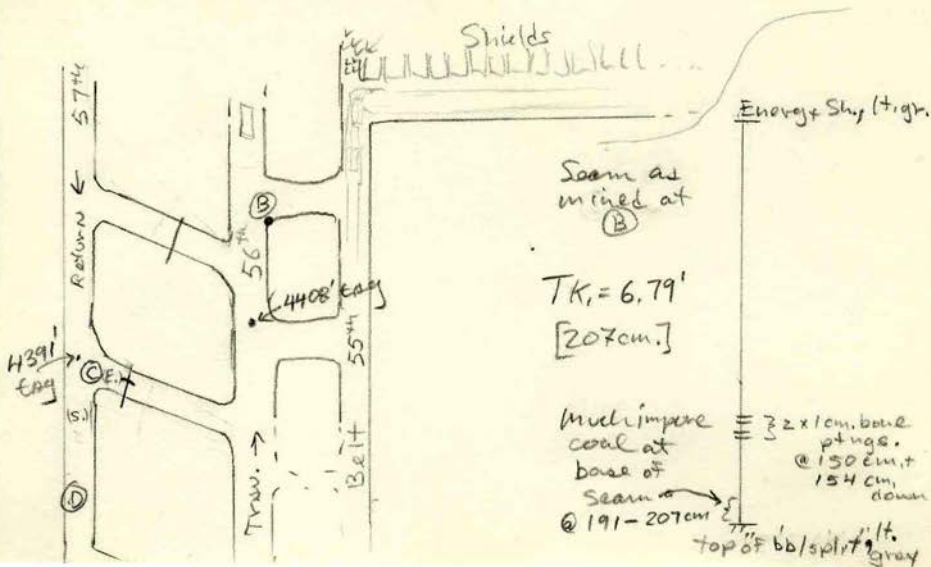 Shields
57th
Return
56th
B
4408' tag
4391'
tag
C (E.)
(S.)
D
Trav. →
55th
Belt
Energy Sh., lt. gr.
Seam as
mined at
B
TK, = 6.79'
[207cm.]
Much impure
coal at
base of
seam
@ 191-207cm
2 x 1cm. bone
ptngs.
@ 150 cm, +
154 cm,
down
top of "bb/split", lt.
gray